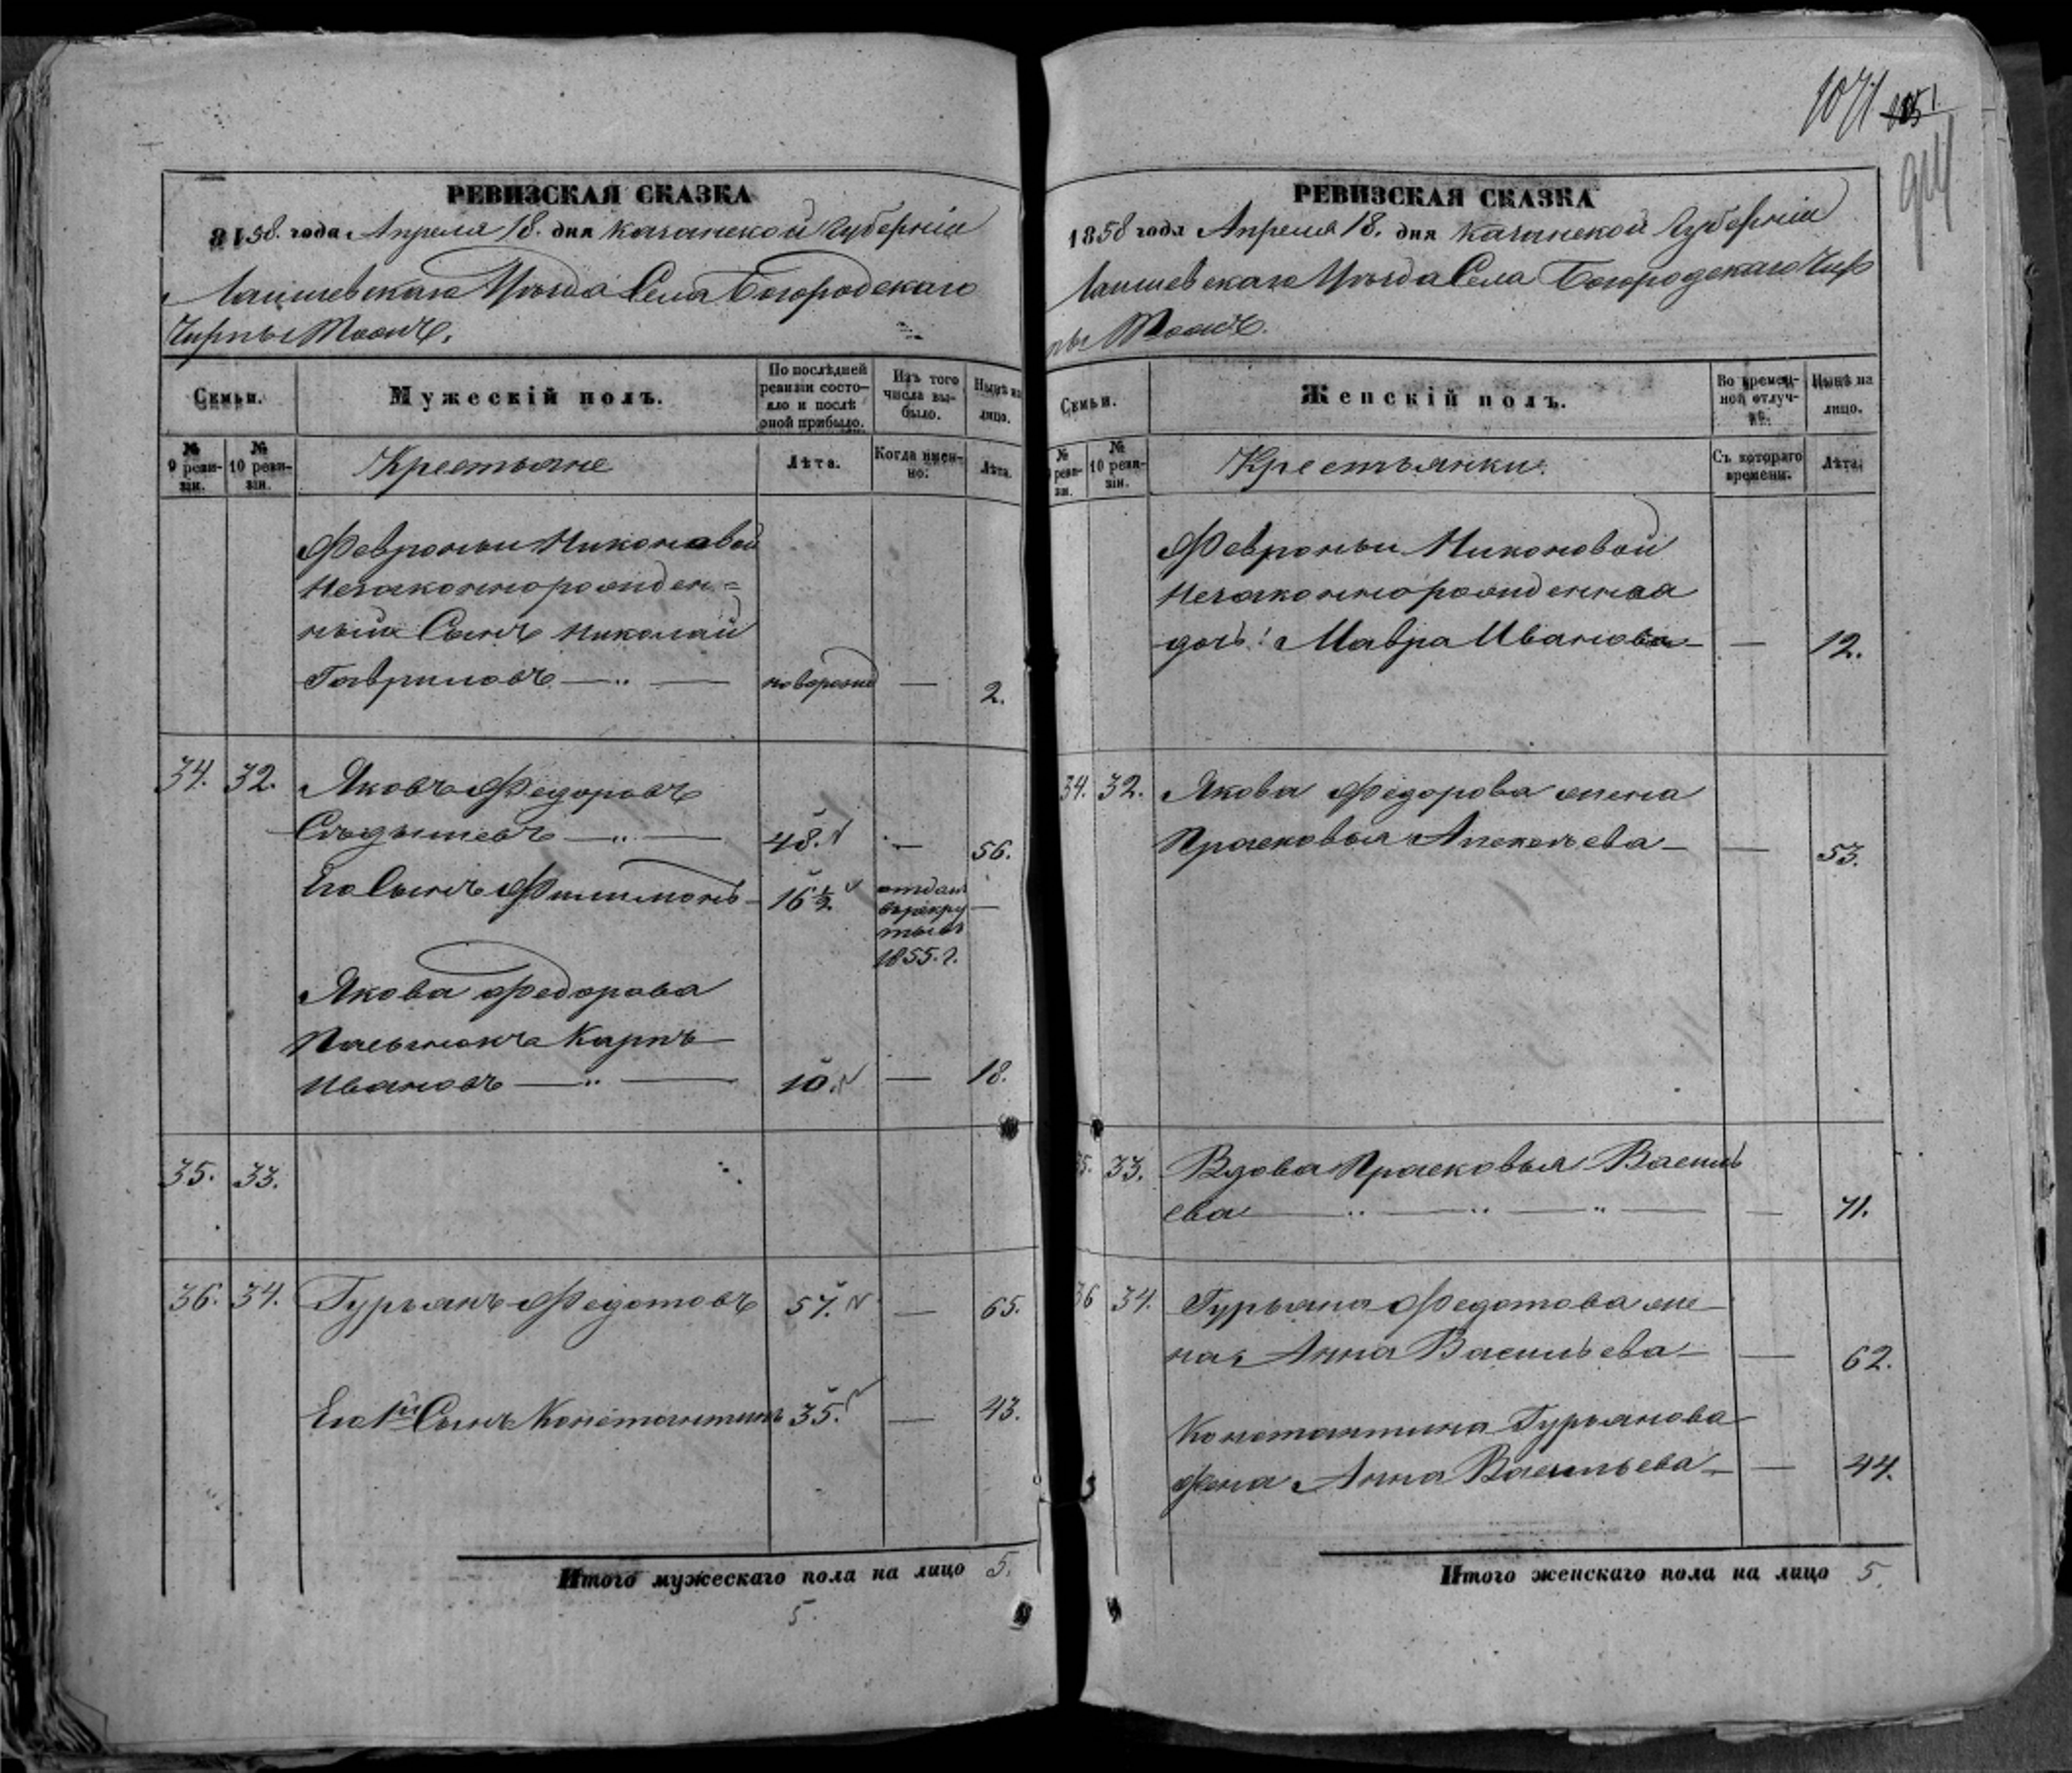 1071 1051
914
РЕВИЗСКАЯ СКАЗКА
8158. года Апреля 18. дня Казанской Губерніи
Лаишевскаго Уѣзда Села Богородскаго
Чирпы тожъ.
Семьи.
Мужескій полъ.
По послѣдней ревизіи состояло и послѣ оной прибыло.
Изъ того числа выбыло.
Нынѣ на лицо.
№ 9 ревизіи.
№ 10 ревизіи.
Крестьяне
Лѣта.
Когда именно:
Лѣта.
Февроньи Никоновой
Незаконнорожден=
ный Сынъ Николай
Гавриловъ — „ — новорожд — 2.
34. 32. Яковъ Федоровъ
— „ — 48. — 56.
Его Сынъ Филимонъ — 16½ отдан —
въ рекру
ты въ
1855. г.
Якова Федорова
Пасынокъ Карпъ
Ивановъ — „ — 10. — 18.
35. 33.
36. 34. Гурьянъ Федотовъ 57. — 65.
Его 1й Сынъ Константинъ 35. — 43.
Итого мужескаго пола на лицо 5.
5.
РЕВИЗСКАЯ СКАЗКА
1858 года Апреля 18. дня Казанской Губерніи
Лаишевскаго Уѣзда Села Богородскаго Чир
пы тожъ.
Семьи.
Женскій полъ.
Во временной отлучкѣ.
Нынѣ на лицо.
№ реви- зіи.
№ 10 ревизіи.
Крестьянки.
Съ котораго времени.
Лѣта.
Февроньи Никоновой
Незаконнорожденная
дочь: Мавра Иванова — — 12.
34. 32. Якова Федорова жена
Прасковья Алексѣева — — 53.
5. 33. Вдова Прасковья Василь
ева — „ — „ — „ — — 71.
36 34. Гурьяна Федотова же—
на, Анна Васильева — — 62.
Константина Гурьянова
жена Анна Васильева — — 44.
Итого женскаго пола на лицо 5.